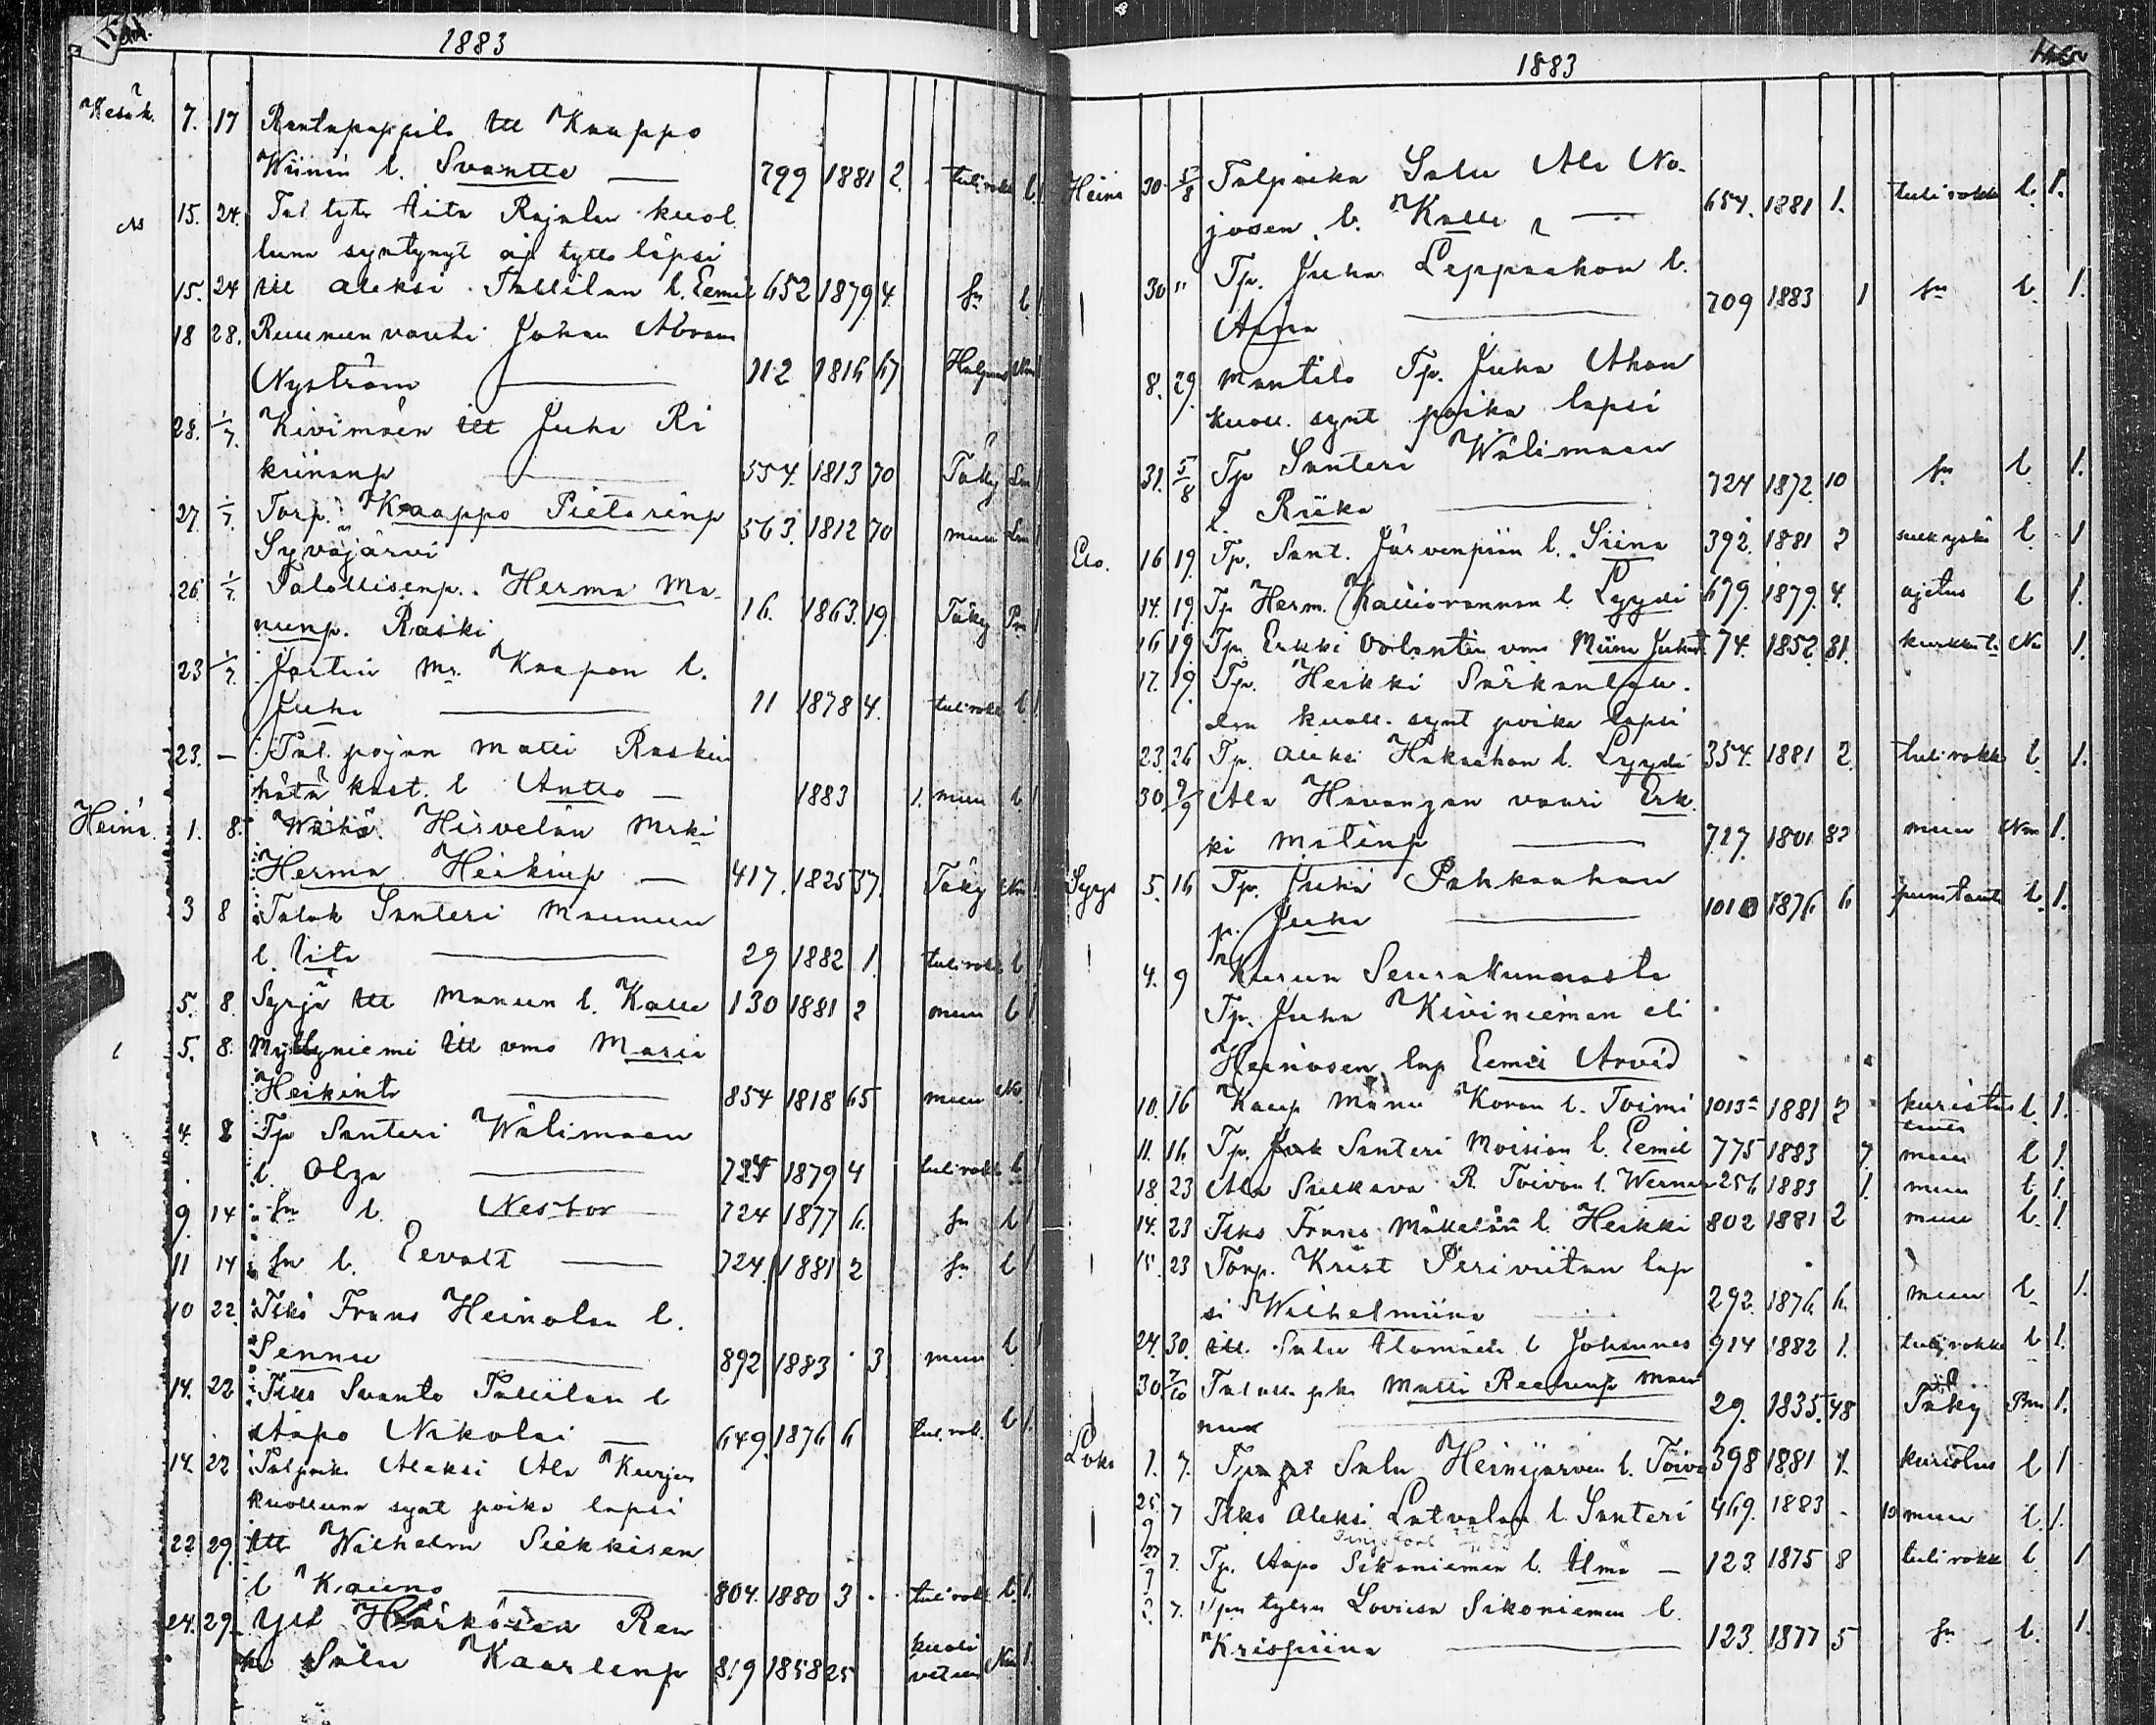 1883
Kesäk. 7. 17 Rantapappila ttl Kaappo
Wiinin l. Svantte — 799 1881 2. tulirokk l 1
15. 24. Tal. tytr Aita Rajalan kuol
luna syntynyt äp tyttö läpsi
15. 24 ttl Aleksi Tallilan l. Eemil 652 1879 4. sn l 1
18 28. Ruunun vouti Johan Abram
Nyström — 112 1816 67 Halpaus Nm
28. 1/7. Kivimäen ttl Juha Ri
kunanp — 554. 1813 70 Täky Lm 1
27. 1/7. Torp. Kaappo Pietarinp 563. 1812 70 muu Lm 1
Syväjärvi
26. 1/7. Talollisenp. Herma Ma
nunp. Raski 16. 1863. 19. Täky Pm 1
23 1/7. Jartin Mr. Kaapon l.
Juha — 11 1878 4. tulirokk l 1
23. — Tal. pojan Matti Raskin
hätä kast. l Antto — 1883 1. muu l 1
Heinä. 1. 8. Wähä Hirvelän
Herma Heikinp — 417. 1825 57. Täky Nm 1
3 8 Talok Santeri Maunun
l. Aita — 29 1882 1. tulirokk l 1
5. 8. Syrjä ttl Manun l. Kalle 130 1881 2 muu l 1
5. 8. Myllyniemi ttl vmo Maria
Heikint — 854 1818 65 muu Nv. 1
4. 8 Tp Santeri Wälimaan
l. Olga — 724 1879 4 tulirokk l 1
9. 14 sn l. Nestor — 724 1877 6. sn l 1
11 14 sn l. Eevalt — 724. 1881 2 sn l 1
10 22. Itks Frans Heinolan l.
Sennu — 892 1883 3 muu l 1
14. 22 Itks Svante Tallilan l
Aapo Nikolai — 649. 1876 6 tul. rok. l 1
14. 22 Talpoik. Aleksi Ala Kurjen
kuolluna synt poika lapsi
22. 29. ttl Wilhelm Siekkisen
l Kauno — 804. 1880 3 tulirokk l. 1
24. 29. Yst Härkösen Ren
ki Salu Kaarlenp 819 1858 25 kuoli
veteen Nm 1.
1883
Heinä 30 5/8 Talpoika Salu Ala No-
josen l. Kalle — 654. 1881 1. tulirokko l. 1.
30 " Tp. Juha Leppaahon l.
Aina — 709 1883 1 sn l. 1.
8. 29. Mantila Tp. Juha Ahon
kuoll. synt poika lapsi
31. 5/8 Tp Santeri Wälimaan
l. Riika — 724 1872. 10 sn l 1.
Elo. 16 19. Tp. Sant. Järvenpään l. Siina 392. 1881 2 l 1
14. 19. Tp Herm. Kalliorannan l. Lyydi 679. 1879. 4. ajetus l 1.
16 19. Tp. Erkki Valantin vmo Miina Juhant. 74. 1852 31. kurkku t. Nv 1.
17. 19. Tp. Heikki Särkanlou.
den kuoll. synt poika lapsi
23. 26 Tp. Aleksi Hakoahon l. Lyydi 354. 1881 2. tulirokko l. 1.
30 2/9 Ala Havangan vaari Erk.
ki Matinp — 727. 1801. 82 muu Nm 1.
Syys 5. 16 Tp. Juha Pahkaahon
p. Juha — 1010 1876 6 punataut l. 1.
4. 9 Kurun Seurakunnasta
Tp. Juha Kiviniemen eli
Heinosen lap Eemil Arvid
10. 16 Kaup Manu Koron l. Toimi 1013 1881 2 kuristus l. 1.
tauti
11. 16. Tp. Santeri Moision l. Eemil 775 1883 7. muu l 1.
18 23 Ala Sulkava R. Toivon l. Werner 256 1883 1. muu l 1.
14. 23 Itks Frans Mäkelän l. Heikki 802 1881 2 muu l. 1.
15. 23 Torp. Krist Periviitan lap
si Wilhelmiina — 292. 1876. 6. muu l. 1.
24. 30. ttl. Salu Alamäen l Johannes 914 1882 1. tulirokko l 1.
30 7/10 Talolls. pk. Matti Reerinp Mau
nun — 29. 1835. 48 Täky Pm 1.
Loka 1. 7. Salu Heinijärven l. Toivo 398 1881 1. kuristus l 1
25/9 7 Itks Aleksi Latvalan l. Santeri 469. 1883 10 muu l. 1.
27/9 7. Tp. Aapo Sikoniemen l. Alma — 123 1875 8 tulirokko l. 1
7. Tpn tytön Loviisa Sikoniemen l.
Krispiina — 123. 1877 5 sn l. 1.